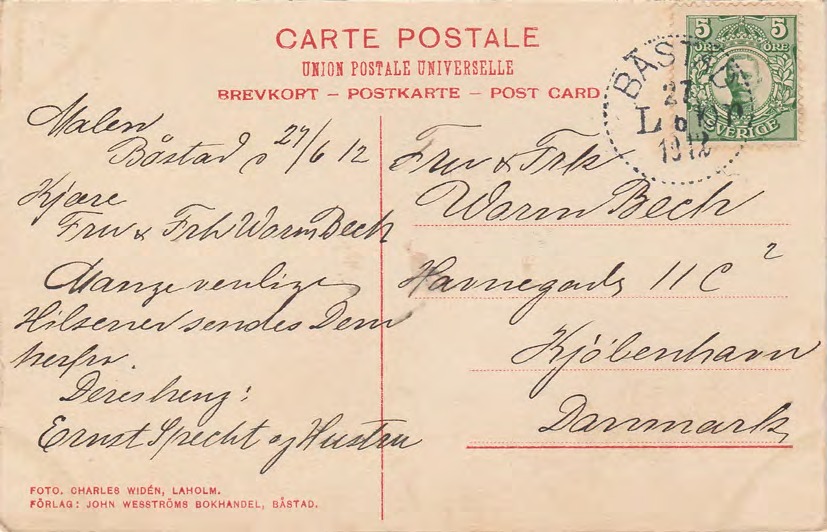 CARTE POSTALE
UNION POSTALE UNIVERSELLE
BREVKORT – POSTKARTE – POST CARD
5 5
ÖRE ÖRE
SVERIGE
BÅSTAD
27
1912
Malen
Båstad d 27/6 12
Kjære
Fru & Frk Warm Bech
Mange venlige
Hilsener sendes Dem
herfra.
Deres heng:
Ernst Specht og Hustru
Fru & Frk
Warm Bech
Havnegade 11 C 2
Kjöbenhavn
Danmark
FOTO. CHARLES WIDÉN, LAHOLM.
FÖRLAG: JOHN WESSTRÖMS BOKHANDEL, BÅSTAD.